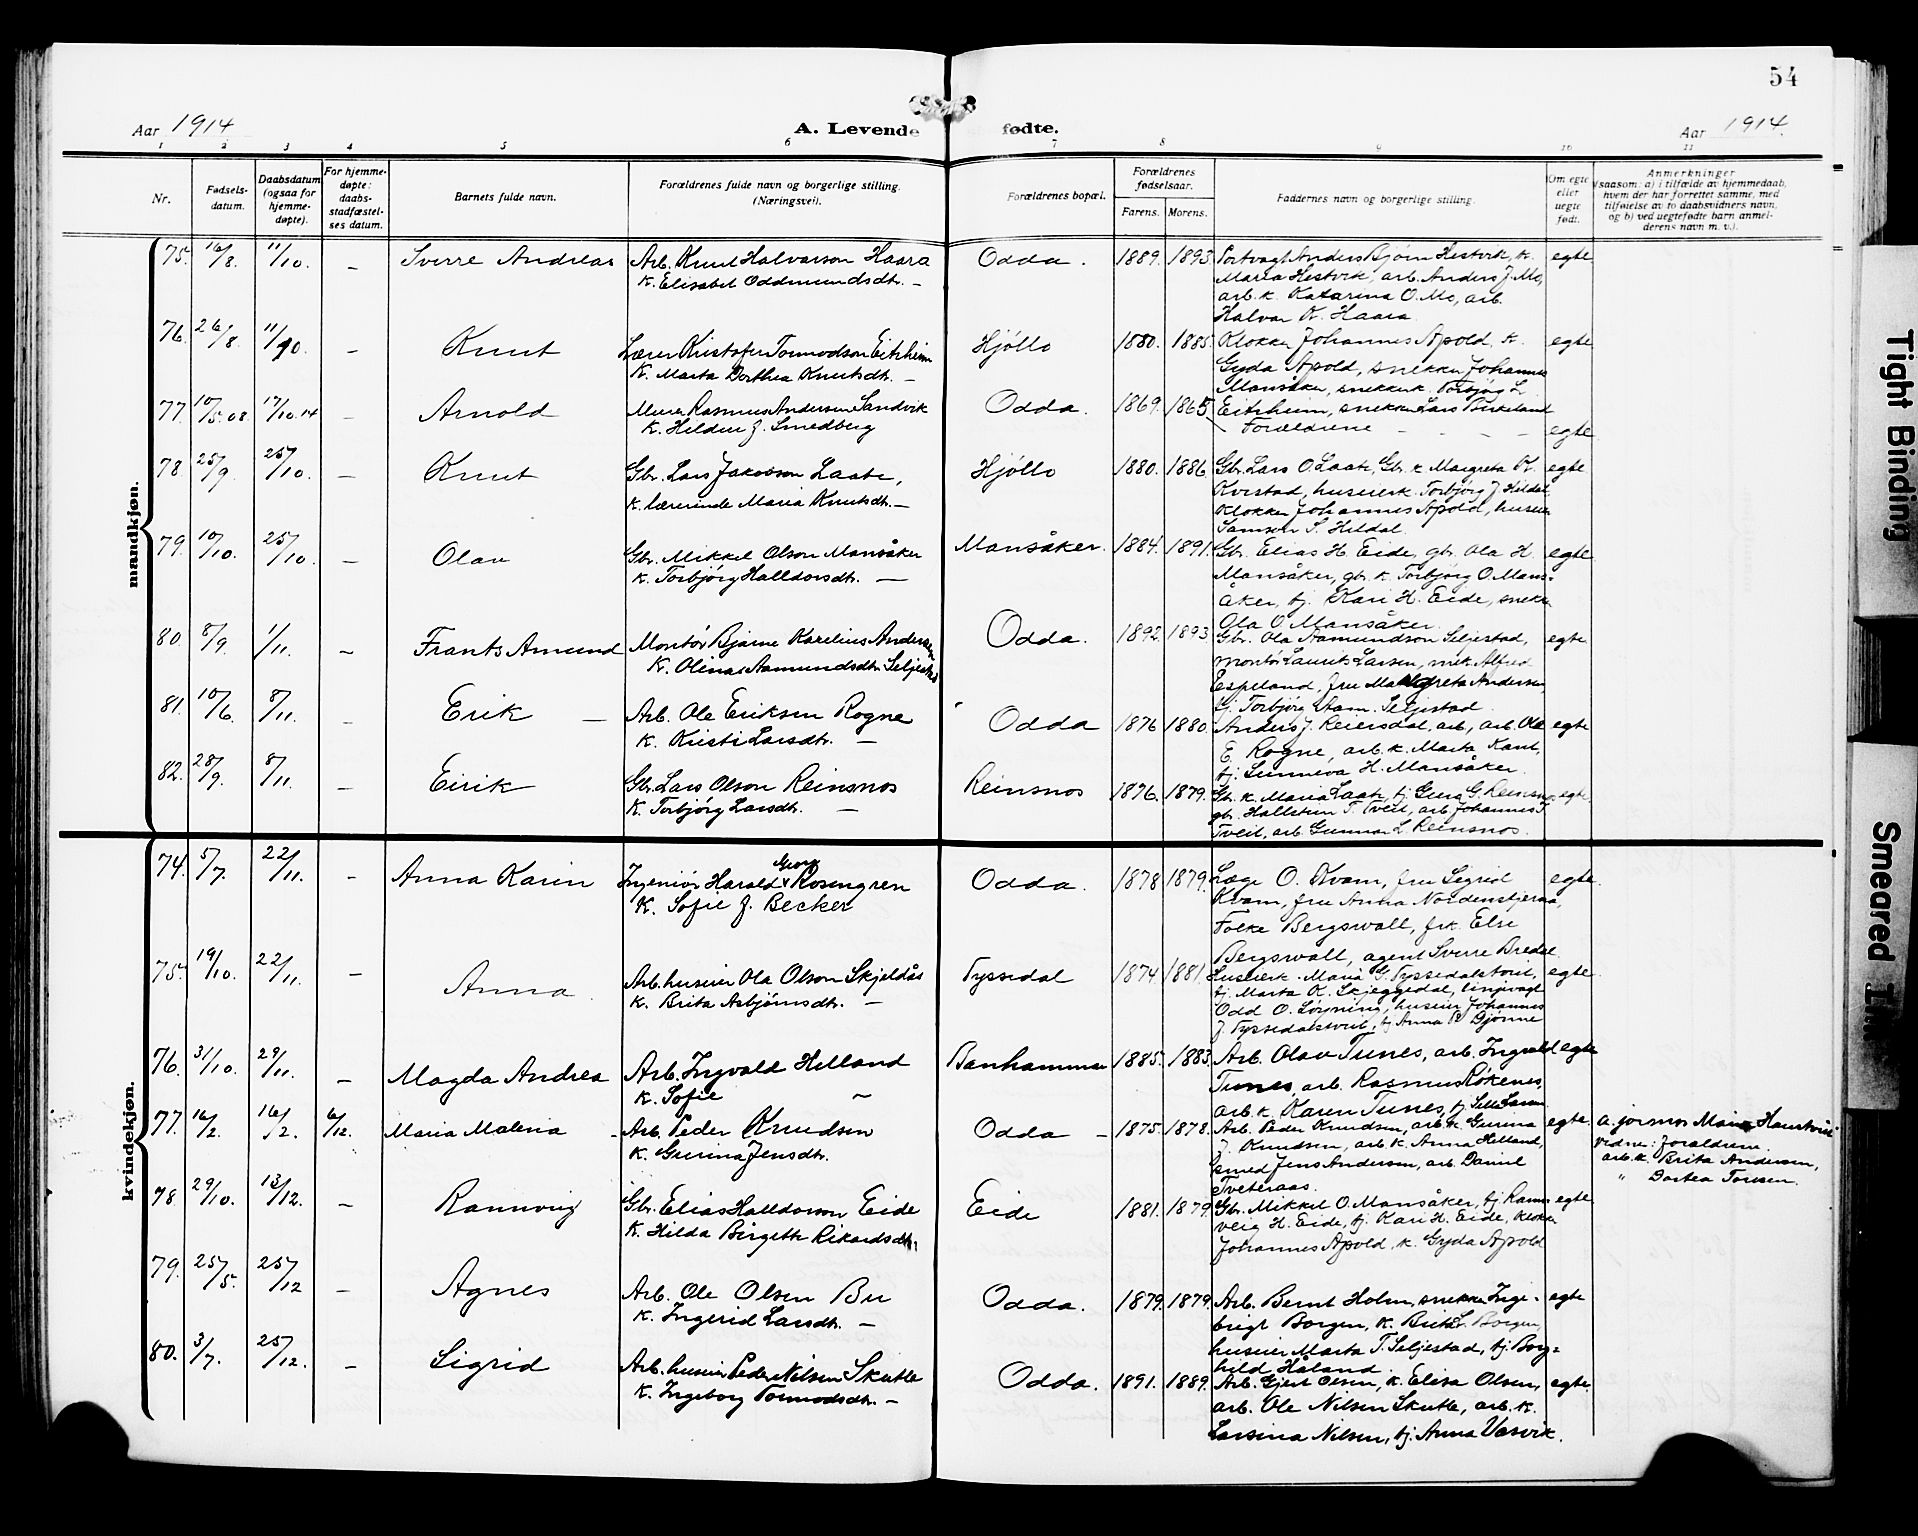 54
Aar 1914
A. Levende fødte.
Aar 1914.
1 2 3 4 5 6 7 8 9 10 11
Nr.
Fødsels-
datum.
Daabsdatum
(ogsaa for
hjemme-
døpte).
For hjemme-
døpte:
daabs-
stadfæstel-
ses datum.
Barnets fulde navn.
Forældrenes fulde navn og borgerlige stilling.
(Næringsvei).
Forældrenes bopæl.
Forældrenes
fødselsaar.
Farens. Morens.
Faddernes navn og borgerlige stilling.
Om egte
eller
uegte
født.
Anmerkninger
(saasom: a) i tilfælde av hjemmedaab,
hvem der har forrettet samme, med
tilføielse av to daabsvidners navn,
og b) ved uegtefødte barn anmel-
derens navn m. v.).
mandkjøn.
75. 16/8. 11/10. – Sverre Andreas
Arb. Knut Halvarson Haara
K. Elisabet Oddmundsdtr. –
Odda. 1889. 1893.
Portvagt Anders Bjørn Hestvik, k.
Maria Hestvik, arb. Anders J. Mo,
arb. k. Katarina O. Mo, arb.
Halvar K. Haara.
egte
76. 26/8. 11/10. – Knut
Lærer Kristofer Tormodson Eitrheim
K. Marta Dorthea Knutsdtr. –
Hjøllo 1880. 1885.
Klokker Johannes Apold, k.
Gyda Apold, snekker Johannes
Mansåker, snekkerk. Torbjørg L.
Eitrheim, snekker Lars Birkeland
egte
77. 10/5.08. 17/10.14 – Arnold
Murer Rasmus Andersen Sandvik
K. Hildur J. Smedberg
Odda. 1869. 1865
Forældrene – – – –
egte
78 25/9. 25/10. – Knut
Gbr. Lars Jakobson Laate,
k. lærerinde Maria Knutsdtr. –
Hjøllo 1880. 1886.
Gbr. Lars O. Laate, Gbr. k. Margreta K.
Kvestad, huseierk. Torbjørg J. Hildal,
Klokker Johannes Apold, huseier
Samson S. Hildal.
egte
79. 10/10. 25/10. – Olav
Gbr. Mikkel Olson Mansåker
K. Torbjørg Halldorsdtr. –
Mansåker. 1884. 1891.
Gbr. Elias H. Eide, gbr. Ola H.
Mansåker, gbr. k. Torbjørg O. Mans-
åker, tj. Kari H. Eide, snekk.
Ola O. Mansåker.
egte
80. 8/9. 1/11. – Frants Amund
Montør Bjarne Karelius Andersen
K. Olina Aamundsdtr. Seljestad
Odda. 1892 1893
Gbr. Ola Aamundson Seljestad,
montør Laurits Larsen, mek. Alfred
Espeland, fru Margreta Andersen,
G. Torbjørg Aam. Seljestad.
egte
81. 10/6. 8/11. – Erik –
Arb. Ole Eriksen Rogne
K. Kristi Larsdtr. –
Odda 1876 1880.
Anders J. Reiersdal, arb., arb. Ole
E. Rogne, arb. k. Marta Kant,
tj. Sunneva H. Mansåker.
egte
82. 28/9. 8/11. – Eirik
Gbr. Lars Olson Reinsnos
K. Torbjørg Larsdtr. –
Reinsnos 1876. 1879.
Gbr. k. Maria Laate, tj. Guro G. Reinsnos
gbr. Hallstein T. Tveit, arb. Johannes T.
Tveit, arb. Gunnar L. Reinsnos.
egte.
kvindekjøn.
74. 5/7. 22/11. – Anna Karin
Ingeniør Harald Georg Rosengren
K. Sofie J. Becker
Odda. 1878 1879.
Læge O. Kvam, fru Sigrid
Kvam, fru Anna Nordenstjerna,
Folke Bergswall, frk. Else
Bergswall, agent Sverre Bredal
egte.
75. 19/10. 22/11. – Anna.
Arb. huseier Ola Olson Skjeldås
K. Brita Asbjørnsdtr. –
Tyssedal 1874 1881.
Huseierk. Maria G. Tyssedalstveit,
tj. Marta K. Skjeggedal, linjevagt
Odd O. Løyning, huseier Johannes
J. Tyssedalstveit, tj. Anna P. Bjønne
egte.
76. 31/10. 29/11. – Magda Andrea
Arb. Ingvald Helland
K. Sofie ~
Banhammar 1885. 1883.
Arb. Olav Tunes, arb. Ingvald
Tunes, arb. Rasmus Røkenes,
arb. k. Karen Tunes, tj. Silla Larsen
egte
77. 16/2. 16/2. 6/12. Maria Malena –
Arb. Peder Knudsen
K. Gurina Jensdtr.
Odda – 1875. 1878.
Arb. Peder Knudsen, arb. k. Gurina
J. Knudsen, arb. k. Anna Helland,
smed Jens Andersen, arb. Daniel
Tveteraas.
egte.
a. jormor Maria Haustveit
Vidner: Forældrene
arb. k. Brita Andersen,
" Dortea Toresen.
78 29/10. 13/12. – Rannveig
Gbr. Elias Halldorson Eide
K. Hilda Birgette Rikardsdtr.
Eide 1881. 1879.
Gbr. Mikkel O. Mansåker, tj. Rann-
veig H. Eide, tj. Kari H. Eide, klokker
Johannes Apold, k. Gyda Apold
egte
79. 25/5. 25/12 – Agnes
Arb. Ole Olsen Bu
K. Ingerid Larsdtr. –
Odda. 1879. 1879.
Arb. Bernt Holm, snekker Inge-
brigt Borgen, k. Brita L. Borgen,
huseier Marta T. Seljestad, tj. Borg-
hild Håland.
egte
80. 3/7. 25/12. – Sigrid
Arb. huseier Peder Nilsen Skutle
K. Ingeborg Tormodsdtr. –
Odda. 1891. 1889.
Arb. Gjert Olsen, k. Elisa Olsen,
arb. Ole Nilsen Skutle, arb. k.
Larsina Nilsen, tj. Anna Vasvik.
egte.
Tight Binding
Smeared Ink